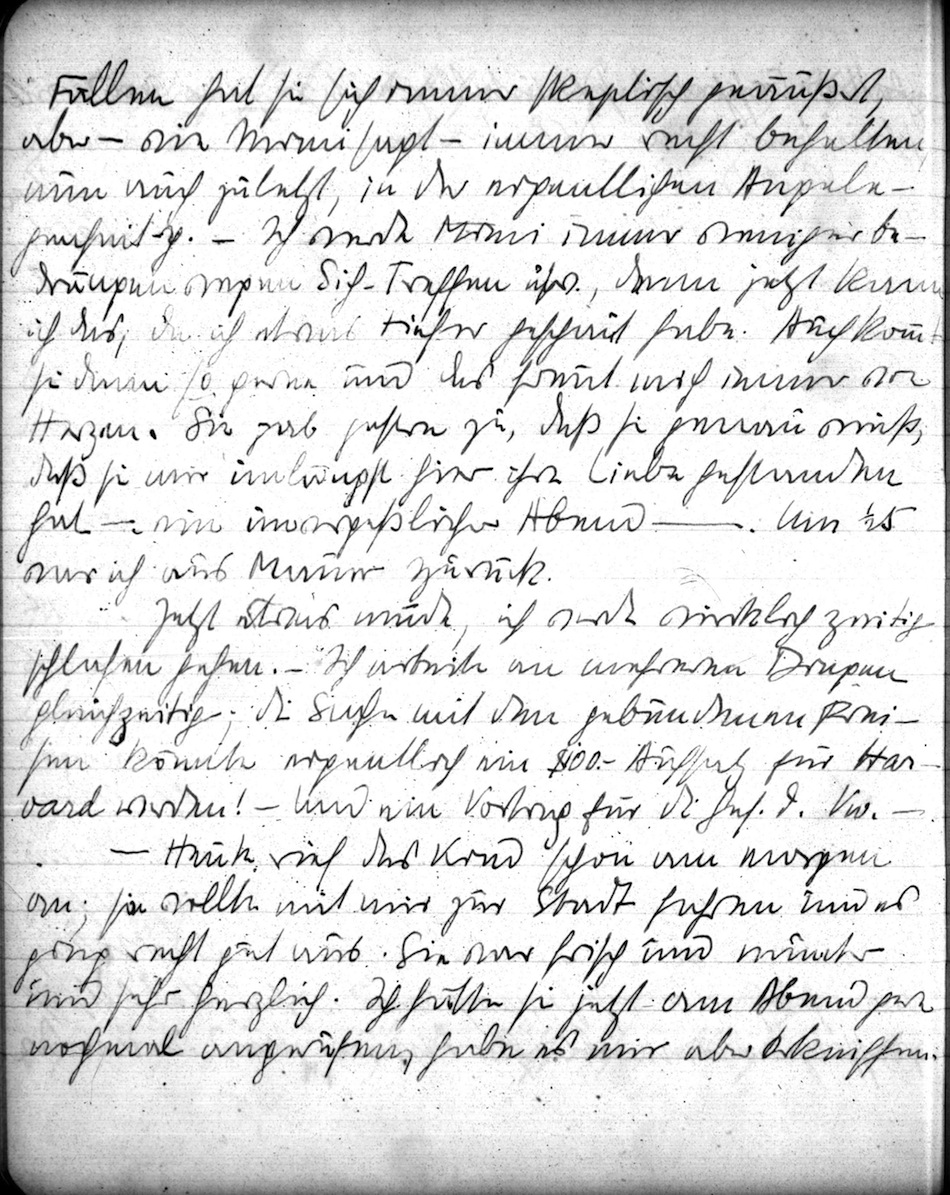 Fällen hat sie sich immer skeptisch geäußert,
aber – wie Mimi sagt – immer recht behalten,
nun auch zuletzt, in der eigentlichen Angele-
genheit – Ich werde Mimi immer weniger be-
drängen wegen Sich-Treffen usw., denn jetzt kann
ich das, da ich etwas tiefer geschaut habe. Auch kommt
sie dann so gerne und das freut mich immer von
Herzen. Sie gab gestern zu, daß sie genau weiß,
daß sie mir unlängst hier ihre Liebe gestanden
hat – ein unvergeßlicher Abend —. Um ½5
war ich aus Mauer zurück.
Jetzt etwas müde, ich werde wirklich zeitig
schlafen gehen. – Ich arbeite an mehreren Dingen
gleichzeitig; die Sache mit den gebundenen Prei-
sen könnte eigentlich ein $100.- Aufsatz für Har-
vard werden! – Und ein Vortrag für die Ges. d. Vw. –
– Heute rief das Kind schon am morgen
an; sie wollte mit mir zur Stadt fahren und es
ging recht gut aus. Sie war frisch und munter
und sehr herzlich. Ich hätte sie jetzt am Abend gern
nochmal angerufen, habe es mir aber verkniffen.